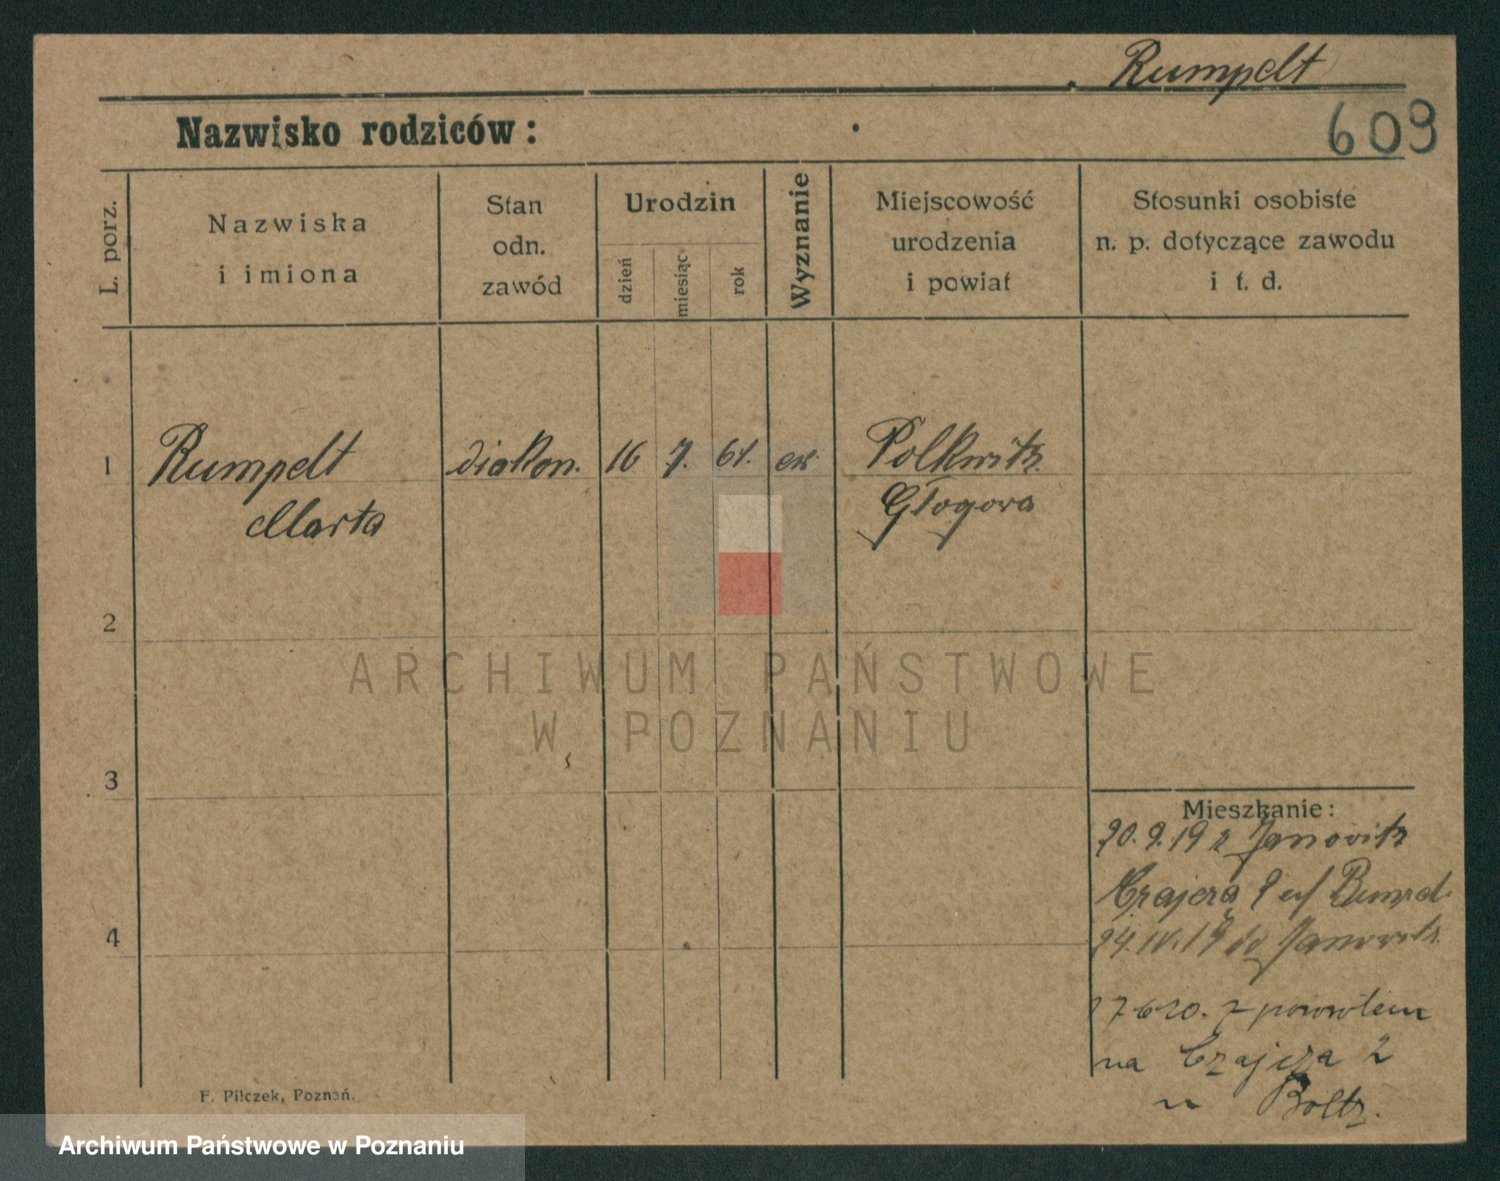 Rumpelt
609
Nazwisko rodziców:
L. porz.
Nazwiska
i imiona
Stan
odn.
zawód
Urodzin
dzień
miesiąc
rok
Wyznanie
Miejscowość
urodzenia
i powiat
Stosunki osobiste
n. p. dotyczące zawodu
i t. d.
1
Rumpelt
Marta
diakon.
16
7.
61.
ew.
Polkwitz
Głogowa
2
ARCHIWUM PAŃSTWOWE
W POZNANIU
3
Mieszkanie:
20.9.19 z Janovitz
Czajcza 2
Janovitz
4
z powrotem
na Czajcza 2
u Boltz.
F. Pilczek, Poznań.
Archiwum Państwowe w Poznaniu